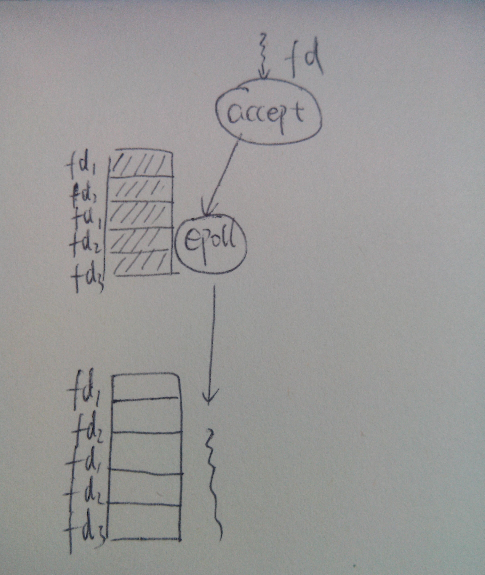 fd
accept
fd1
fd2
fd1
fd2
fd3
epoll
fd1
fd2
fd1
fd2
fd3